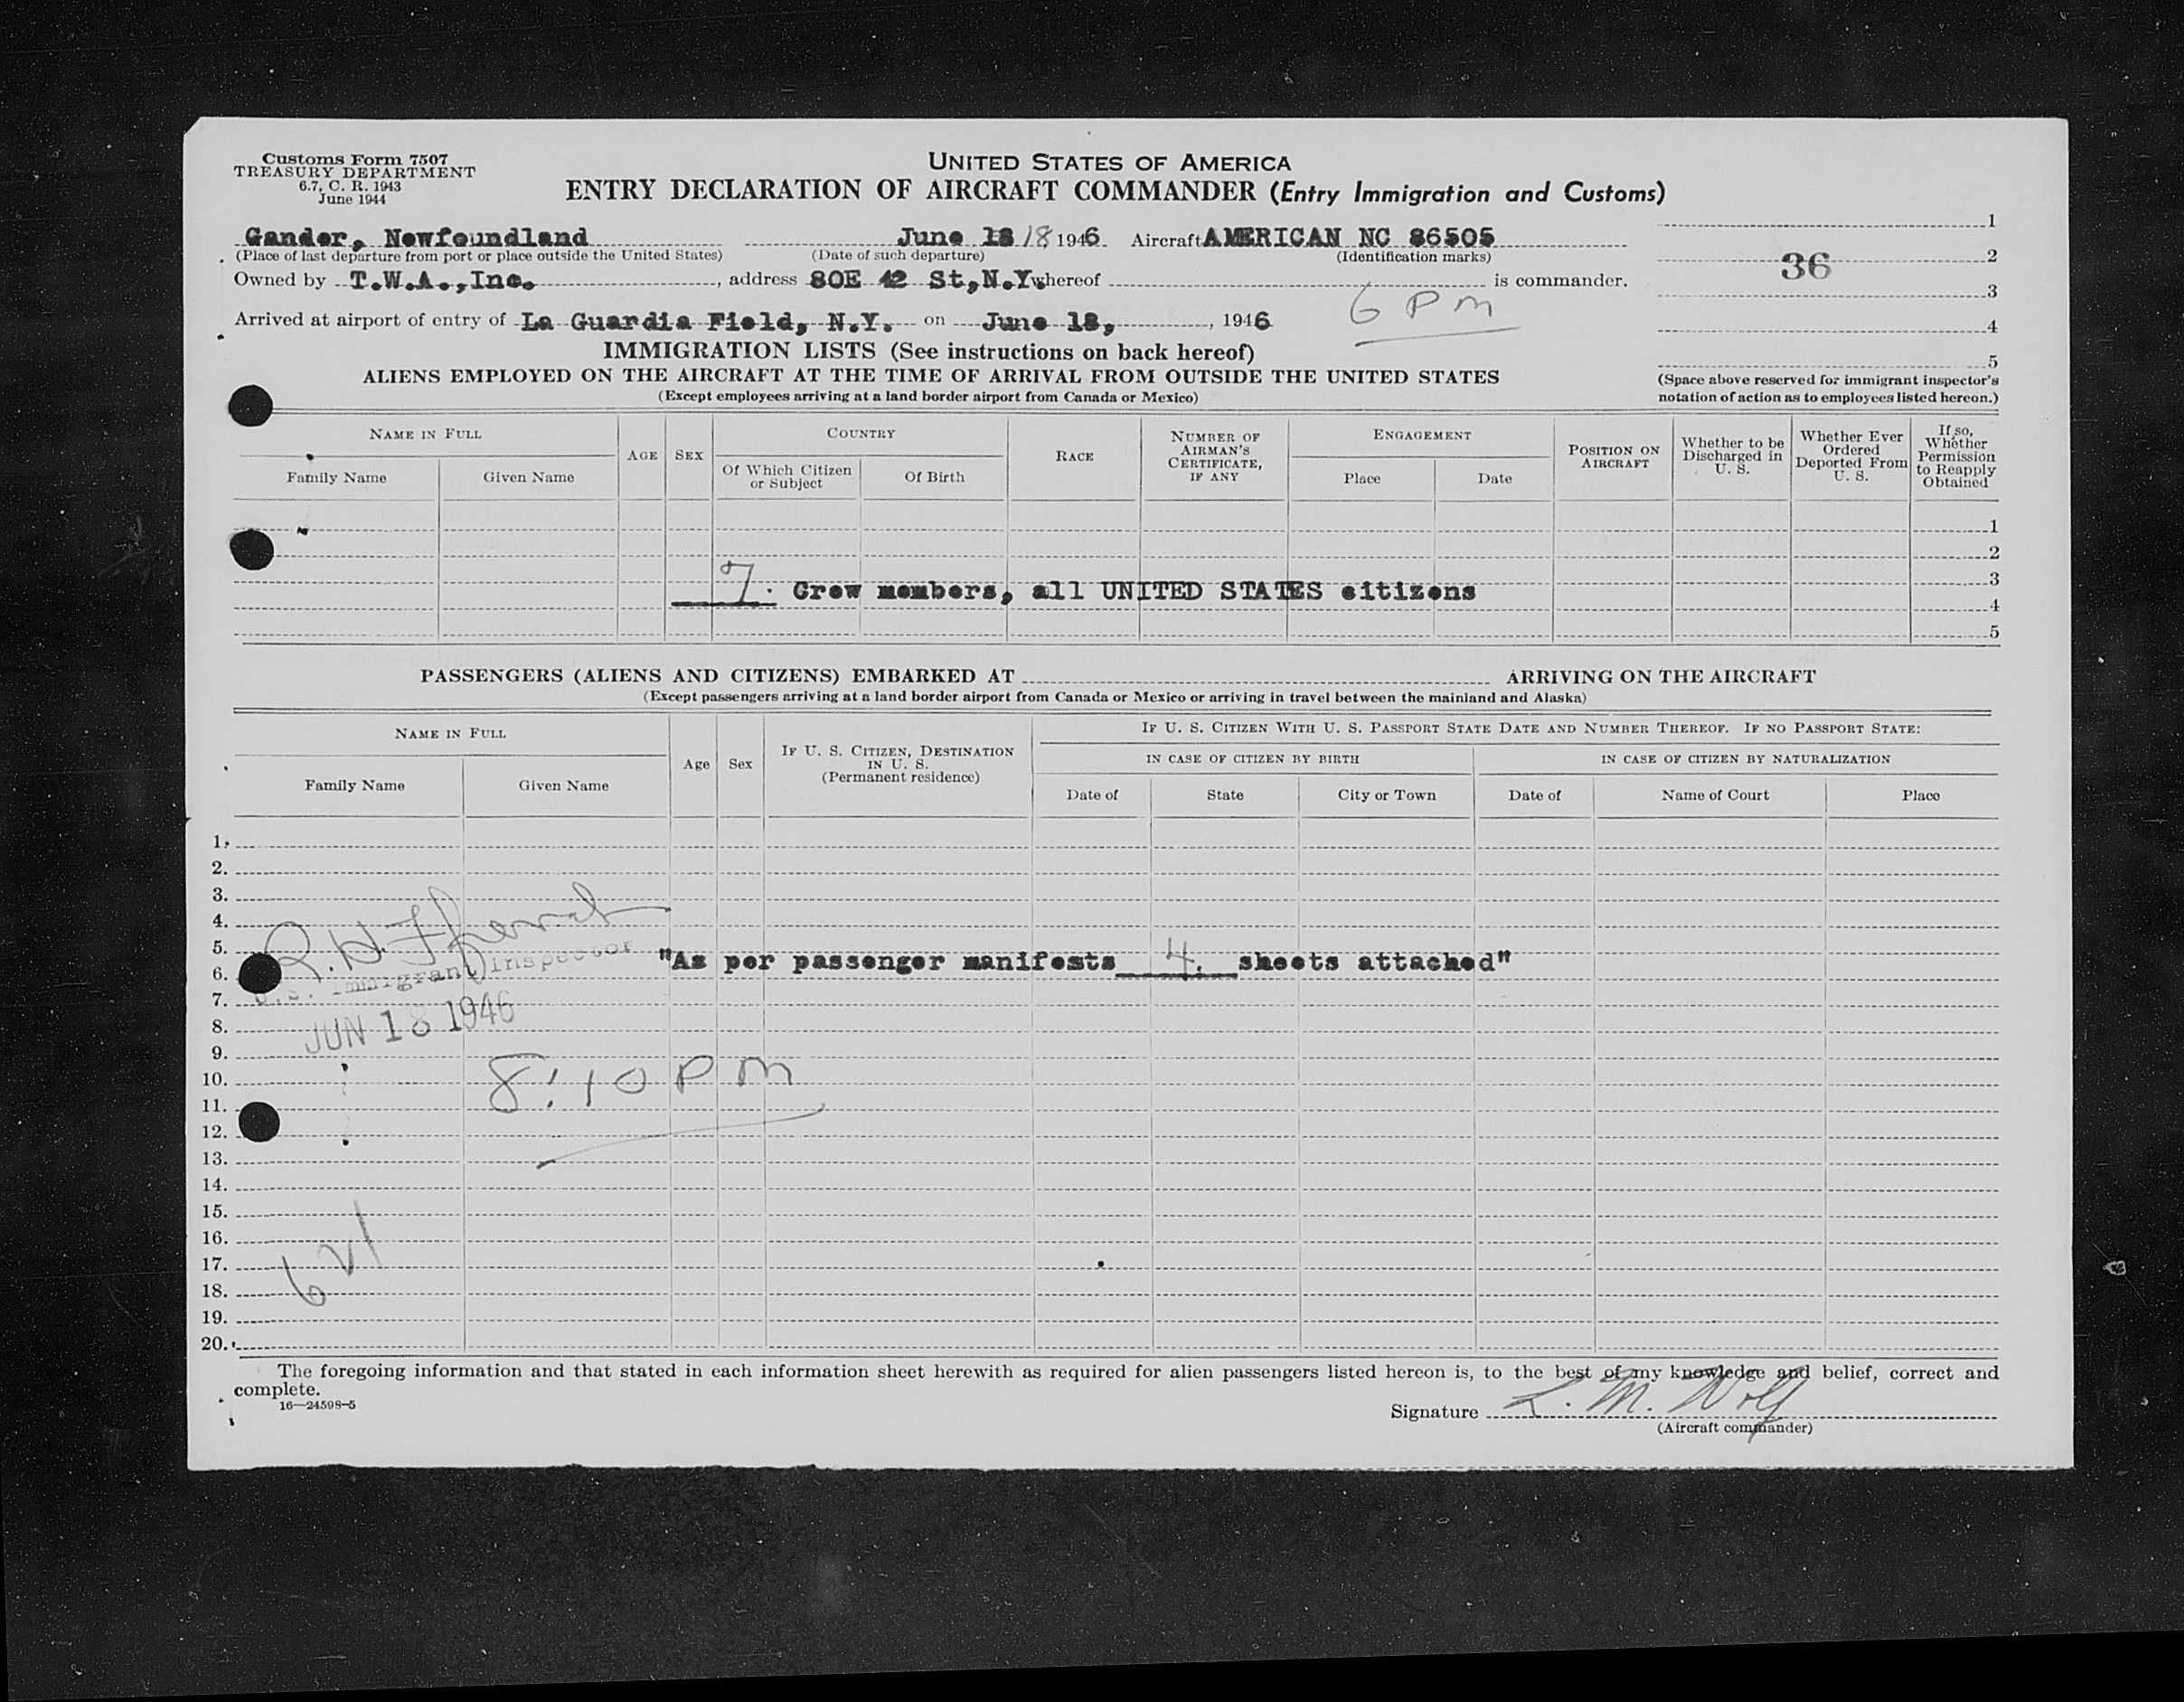 Customs Form 7507
TREASURY DEPARTMENT
6.7, C. R. 1943
June 1944
UNITED STATES OF AMERICA
ENTRY DECLARATION OF AIRCRAFT COMMANDER (Entry Immigration and Customs)
Gander, Newfoundland June 18 18 1946 Aircraft AMERICAN NC 86505
(Place of last departure from port or place outside the United States) (Date of such departure) (Identification marks)
Owned by T.W.A.,Inc. , address 80E 42 St,N.Y. whereof is commander.
Arrived at airport of entry of La Guardia Field, N.Y. on June 18, , 1946 6 PM
1
2
36
3
4
5
(Space above reserved for immigrant inspector's
notation of action as to employees listed hereon.)
IMMIGRATION LISTS (See instructions on back hereof)
ALIENS EMPLOYED ON THE AIRCRAFT AT THE TIME OF ARRIVAL FROM OUTSIDE THE UNITED STATES
(Except employees arriving at a land border airport from Canada or Mexico)
NAME IN FULL
Family Name Given Name
AGE
SEX
COUNTRY
Of Which Citizen or Subject
Of Birth
RACE
NUMBER OF AIRMAN'S CERTIFICATE, IF ANY
ENGAGEMENT
Place Date
POSITION ON AIRCRAFT
Whether to be Discharged in U. S.
Whether Ever Ordered Deported From U. S.
If so, Whether Permission to Reapply Obtained
1
2
3
7. Crew members, all UNITED STATES citizens
4
5
PASSENGERS (ALIENS AND CITIZENS) EMBARKED AT ARRIVING ON THE AIRCRAFT
(Except passengers arriving at a land border airport from Canada or Mexico or arriving in travel between the mainland and Alaska)
NAME IN FULL
Family Name Given Name
Age
Sex
IF U. S. CITIZEN, DESTINATION IN U. S.
(Permanent residence)
IF U. S. CITIZEN WITH U. S. PASSPORT STATE DATE AND NUMBER THEREOF. IF NO PASSPORT STATE:
IN CASE OF CITIZEN BY BIRTH IN CASE OF CITIZEN BY NATURALIZATION
Date of State City or Town Date of Name of Court Place
1.
2.
3.
4.
5.
6. U.S. Immigrant Inspector "As per passenger manifests 4. sheets attached"
7.
8. JUN 18 1946
9.
10. 8:10 PM
11.
12.
13.
14.
15.
16.
17. 621
18.
19.
20.
The foregoing information and that stated in each information sheet herewith as required for alien passengers listed hereon is, to the best of my knowledge and belief, correct and
complete.
16—24598-5
Signature L. M. Wolf
(Aircraft commander)